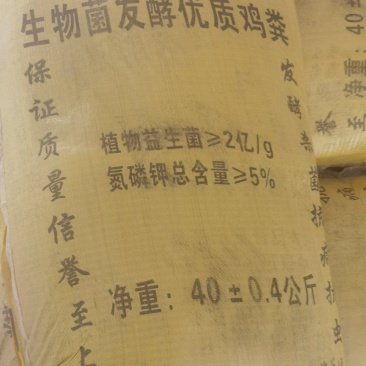 生物菌发酵优质鸡粪
保证质量信誉至上
植物益生菌≥2亿/g
氮磷钾总含量≥5%
净重：40±0.4公斤
发酵
净重：
40
誉至